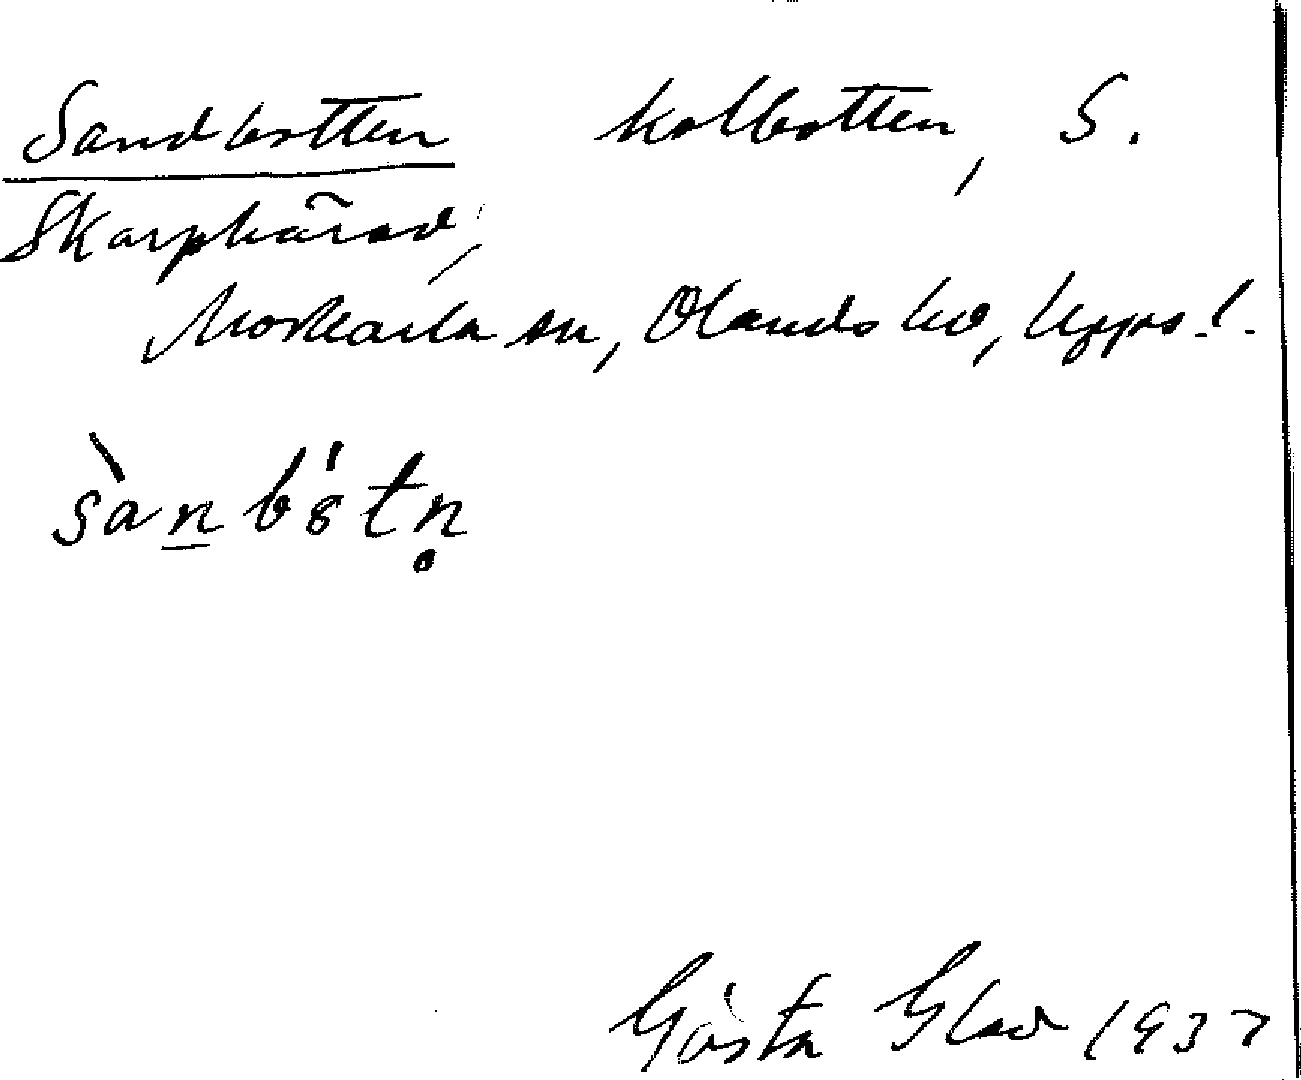 Sandbotten kolbotten, S.
Skarphärad,
Morkarla sn, Olands hd, Upps. l.
sànbótn̥
Gösta Glad 1937